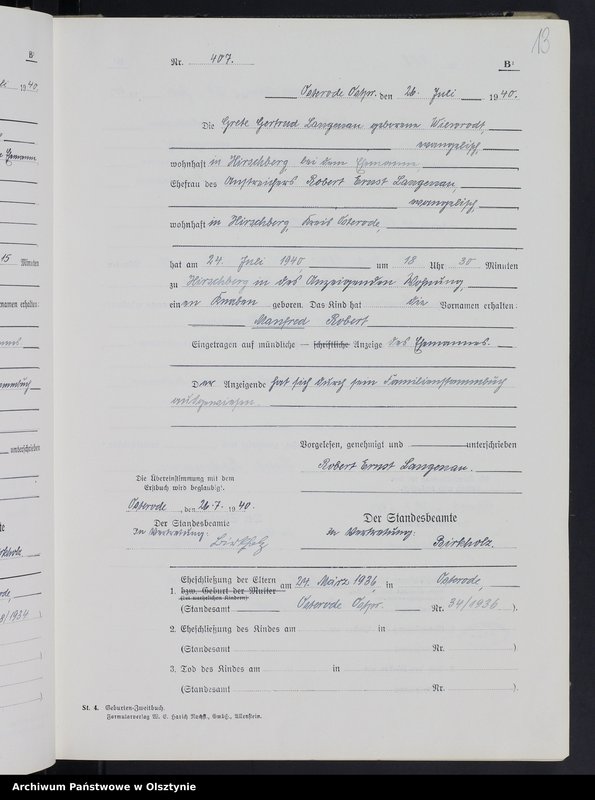 13
Nr. 407.
B¹
Osterode Ostpr. den 26. Juli 1940.
Die Grete Gertrud Langenau geborene Wiewrodt,
evangelisch,
wohnhaft in Hirschberg bei dem Ehemann,
Ehefrau des Anstreichers Robert Ernst Langenau,
evangelisch,
wohnhaft in Hirschberg, Kreis Osterode,
hat am 24. Juli 1940 um 18 Uhr 30 Minuten
zu Hirschberg in des Anzeigenden Wohnung,
einen Knaben geboren. Das Kind hat die Vornamen erhalten:
Manfred Robert
Eingetragen auf mündliche – schriftliche Anzeige des Ehemannes.
Der Anzeigende hat sich durch sein Familienstammbuch
ausgewiesen.
Vorgelesen, genehmigt und unterschrieben
Robert Ernst Langenau.
Die Übereinstimmung mit dem
Erstbuch wird beglaubigt.
Osterode, den 26.7.1940.
Der Standesbeamte
In Vertretung:
Birkholz
Der Standesbeamte
In Vertretung:
Birkholz.
1. Eheschließung der Eltern am 24. März 1936, in Osterode,
bzw. Geburt der Mutter
(bei unehelichen Kindern)
(Standesamt Osterode Ostpr. Nr. 34/1936 ).
2. Eheschließung des Kindes am in
(Standesamt Nr. ).
3. Tod des Kindes am in
(Standesamt Nr. ).
St. 4. Geburten-Zweitbuch.
Formularverlag W. E. Harich Nachf., GmbH., Allenstein.
Archiwum Państwowe w Olsztynie